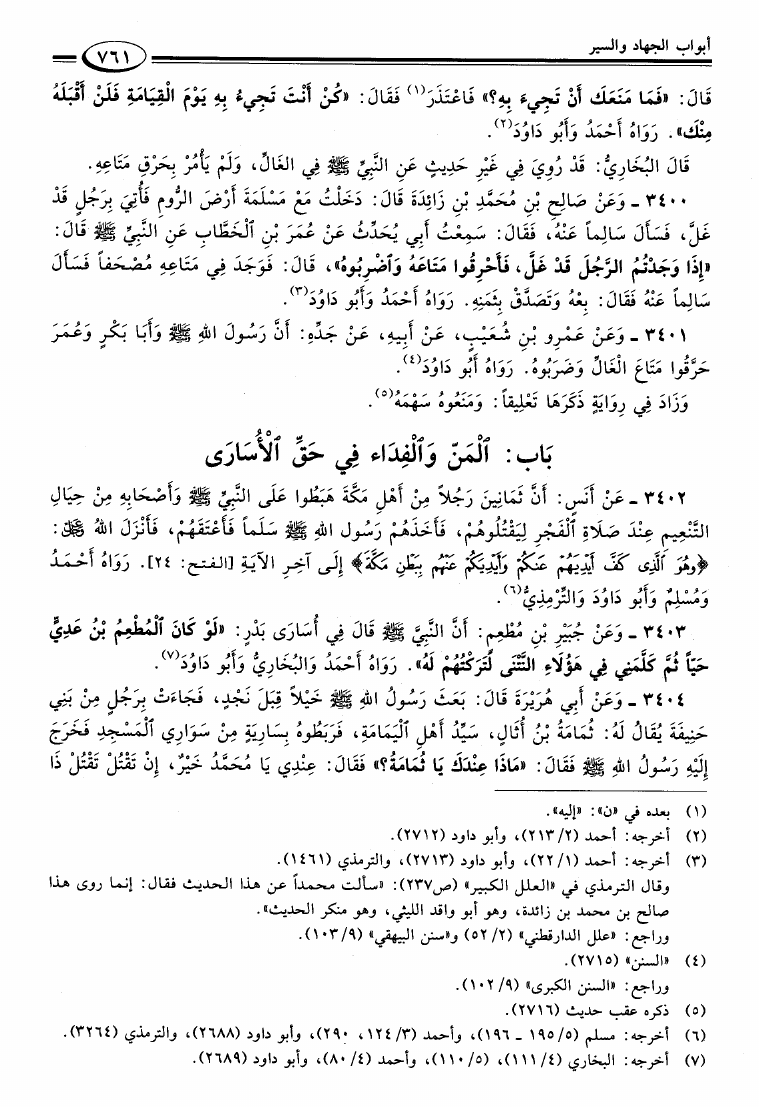 أبواب الجهاد والسير
٧٦١
قَالَ: «فَمَا مَنَعَكَ أَنْ تَجِيءَ بِهِ؟» فَاعْتَذَرَ(١) فَقَالَ: «كُنْ أَنْتَ تَجِيءُ بِهِ يَوْمَ الْقِيَامَةِ فَلَنْ أَقْبَلَهُ
مِنْكَ». رَوَاهُ أَحْمَدُ وَأَبُو دَاوُدَ(٢).
قَالَ البُخَارِيُّ: قَدْ رُوِيَ فِي غَيْرِ حَدِيثٍ عَنِ النَّبِيِّ ﷺ فِي الغَالِّ، وَلَمْ يَأْمُرْ بِحَرْقِ مَتَاعِهِ.
٣٤٠٠ ـ وَعَنْ صَالِحِ بْنِ مُحَمَّدِ بْنِ زَائِدَةَ قَالَ: دَخَلْتُ مَعَ مَسْلَمَةَ أَرْضَ الرُّومِ فَأُتِيَ بِرَجُلٍ قَدْ
غَلَّ، فَسَأَلَ سَالِماً عَنْهُ، فَقَالَ: سَمِعْتُ أَبِي يُحَدِّثُ عَنْ عُمَرَ بْنِ ٱلْخَطَّابِ عَنِ النَّبِيِّ ﷺ قَالَ:
«إِذَا وَجَدْتُمُ الرَّجُلَ قَدْ غَلَّ، فَأَحْرِقُوا مَتَاعَهُ وَٱضْرِبُوهُ»، قَالَ: فَوَجَدَ فِي مَتَاعِهِ مُصْحَفاً فَسَأَلَ
سَالِماً عَنْهُ فَقَالَ: بِعْهُ وَتَصَدَّقْ بِثَمَنِهِ. رَوَاهُ أَحْمَدُ وَأَبُو دَاوُدَ(٣).
٣٤٠١ ـ وَعَنْ عَمْرِو بْنِ شُعَيْبٍ، عَنْ أَبِيهِ، عَنْ جَدِّهِ: أَنَّ رَسُولَ اللهِ ﷺ وَأَبَا بَكْرٍ وَعُمَرَ
حَرَّقُوا مَتَاعَ الْغَالِّ وَضَرَبُوهُ. رَوَاهُ أَبُو دَاوُدَ(٤).
وَزَادَ فِي رِوَايَةٍ ذَكَرَهَا تَعْلِيقاً: وَمَنَعُوهُ سَهْمَهُ(٥).
بَاب: ٱلْمَنّ وَٱلْفِدَاء فِي حَقِّ ٱلْأُسَارَى
٣٤٠٢ ـ عَنْ أَنَسٍ: أَنَّ ثَمَانِينَ رَجُلاً مِنْ أَهْلِ مَكَّةَ هَبَطُوا عَلَى النَّبِيِّ ﷺ وَأَصْحَابِهِ مِنْ حِيَالِ
التَّنْعِيمِ عِنْدَ صَلَاةِ ٱلْفَجْرِ لِيَقْتُلُوهُمْ، فَأَخَذَهُمْ رَسُول اللهِ ﷺ سَلَماً فَأَعْتَقَهُمْ، فَأَنْزَلَ اللهُ ﷻ:
﴿وَهُوَ ٱلَّذِى كَفَّ أَيْدِيَهُمْ عَنكُمْ وَأَيْدِيَكُمْ عَنْهُم بِبَطْنِ مَكَّةَ﴾ إِلَى آخِرِ الآيَةِ [الفتح: ٢٤]. رَوَاهُ أَحْمَدُ
وَمُسْلِمٌ وَأَبُو دَاوُدَ وَالتِّرْمِذِيُّ(٦).
٣٤٠٣ ـ وَعَنْ جُبَيْرِ بْنِ مُطْعِمٍ: أَنَّ النَّبِيَّ ﷺ قَالَ فِي أُسَارَى بَدْرٍ: «لَوْ كَانَ ٱلْمُطْعِمُ بْنُ عَدِيٍّ
حَيّاً ثُمَّ كَلَّمَنِي فِي هَؤُلَاءِ النَّتْنَى لَتَرَكْتُهُمْ لَهُ». رَوَاهُ أَحْمَدُ وَالبُخَارِيُّ وَأَبُو دَاوُدَ(٧).
٣٤٠٤ ـ وَعَنْ أَبِي هُرَيْرَةَ قَالَ: بَعَثَ رَسُولُ اللهِ ﷺ خَيْلاً قِبَلَ نَجْدٍ، فَجَاءَتْ بِرَجُلٍ مِنْ بَنِي
حَنِيفَةَ يُقَالُ لَهُ: ثُمَامَةُ بْنُ أُثَالٍ، سَيِّدُ أَهْلِ ٱلْيَمَامَةِ، فَرَبَطُوهُ بِسَارِيَةٍ مِنْ سَوَارِي ٱلْمَسْجِدِ فَخَرَجَ
إِلَيْهِ رَسُولُ اللهِ ﷺ فَقَالَ: «مَاذَا عِنْدَكَ يَا ثُمَامَةُ؟» فَقَالَ: عِنْدِي يَا مُحَمَّدُ خَيْرٌ، إِنْ تَقْتُلْ تَقْتُلْ ذَا
(١) بعده في «ن»: «إليه».
(٢) أخرجه: أحمد (٢/ ٢١٣)، وأبو داود (٢٧١٢).
(٣) أخرجه: أحمد (١/ ٢٢)، وأبو داود (٢٧١٣)، والترمذي (١٤٦١).
وقال الترمذي في «العلل الكبير» (ص٢٣٧): «سألت محمداً عن هذا الحديث فقال: إنما روى هذا
صالح بن محمد بن زائدة، وهو أبو واقد الليثي، وهو منكر الحديث».
وراجع: «علل الدارقطني» (٢/ ٥٢) و«سنن البيهقي» (٩/ ١٠٣).
(٤) «السنن» (٢٧١٥).
وراجع: «السنن الكبرى» (٩/ ١٠٢).
(٥) ذكره عقب حديث (٢٧١٦).
(٦) أخرجه: مسلم (٥/ ١٩٥ ـ ١٩٦)، وأحمد (٣/ ١٢٤، ٢٩٠)، وأبو داود (٢٦٨٨)، والترمذي (٣٢٦٤).
(٧) أخرجه: البخاري (٤/ ١١١)، (٥/ ١١٠)، وأحمد (٤/ ٨٠)، وأبو داود (٢٦٨٩).